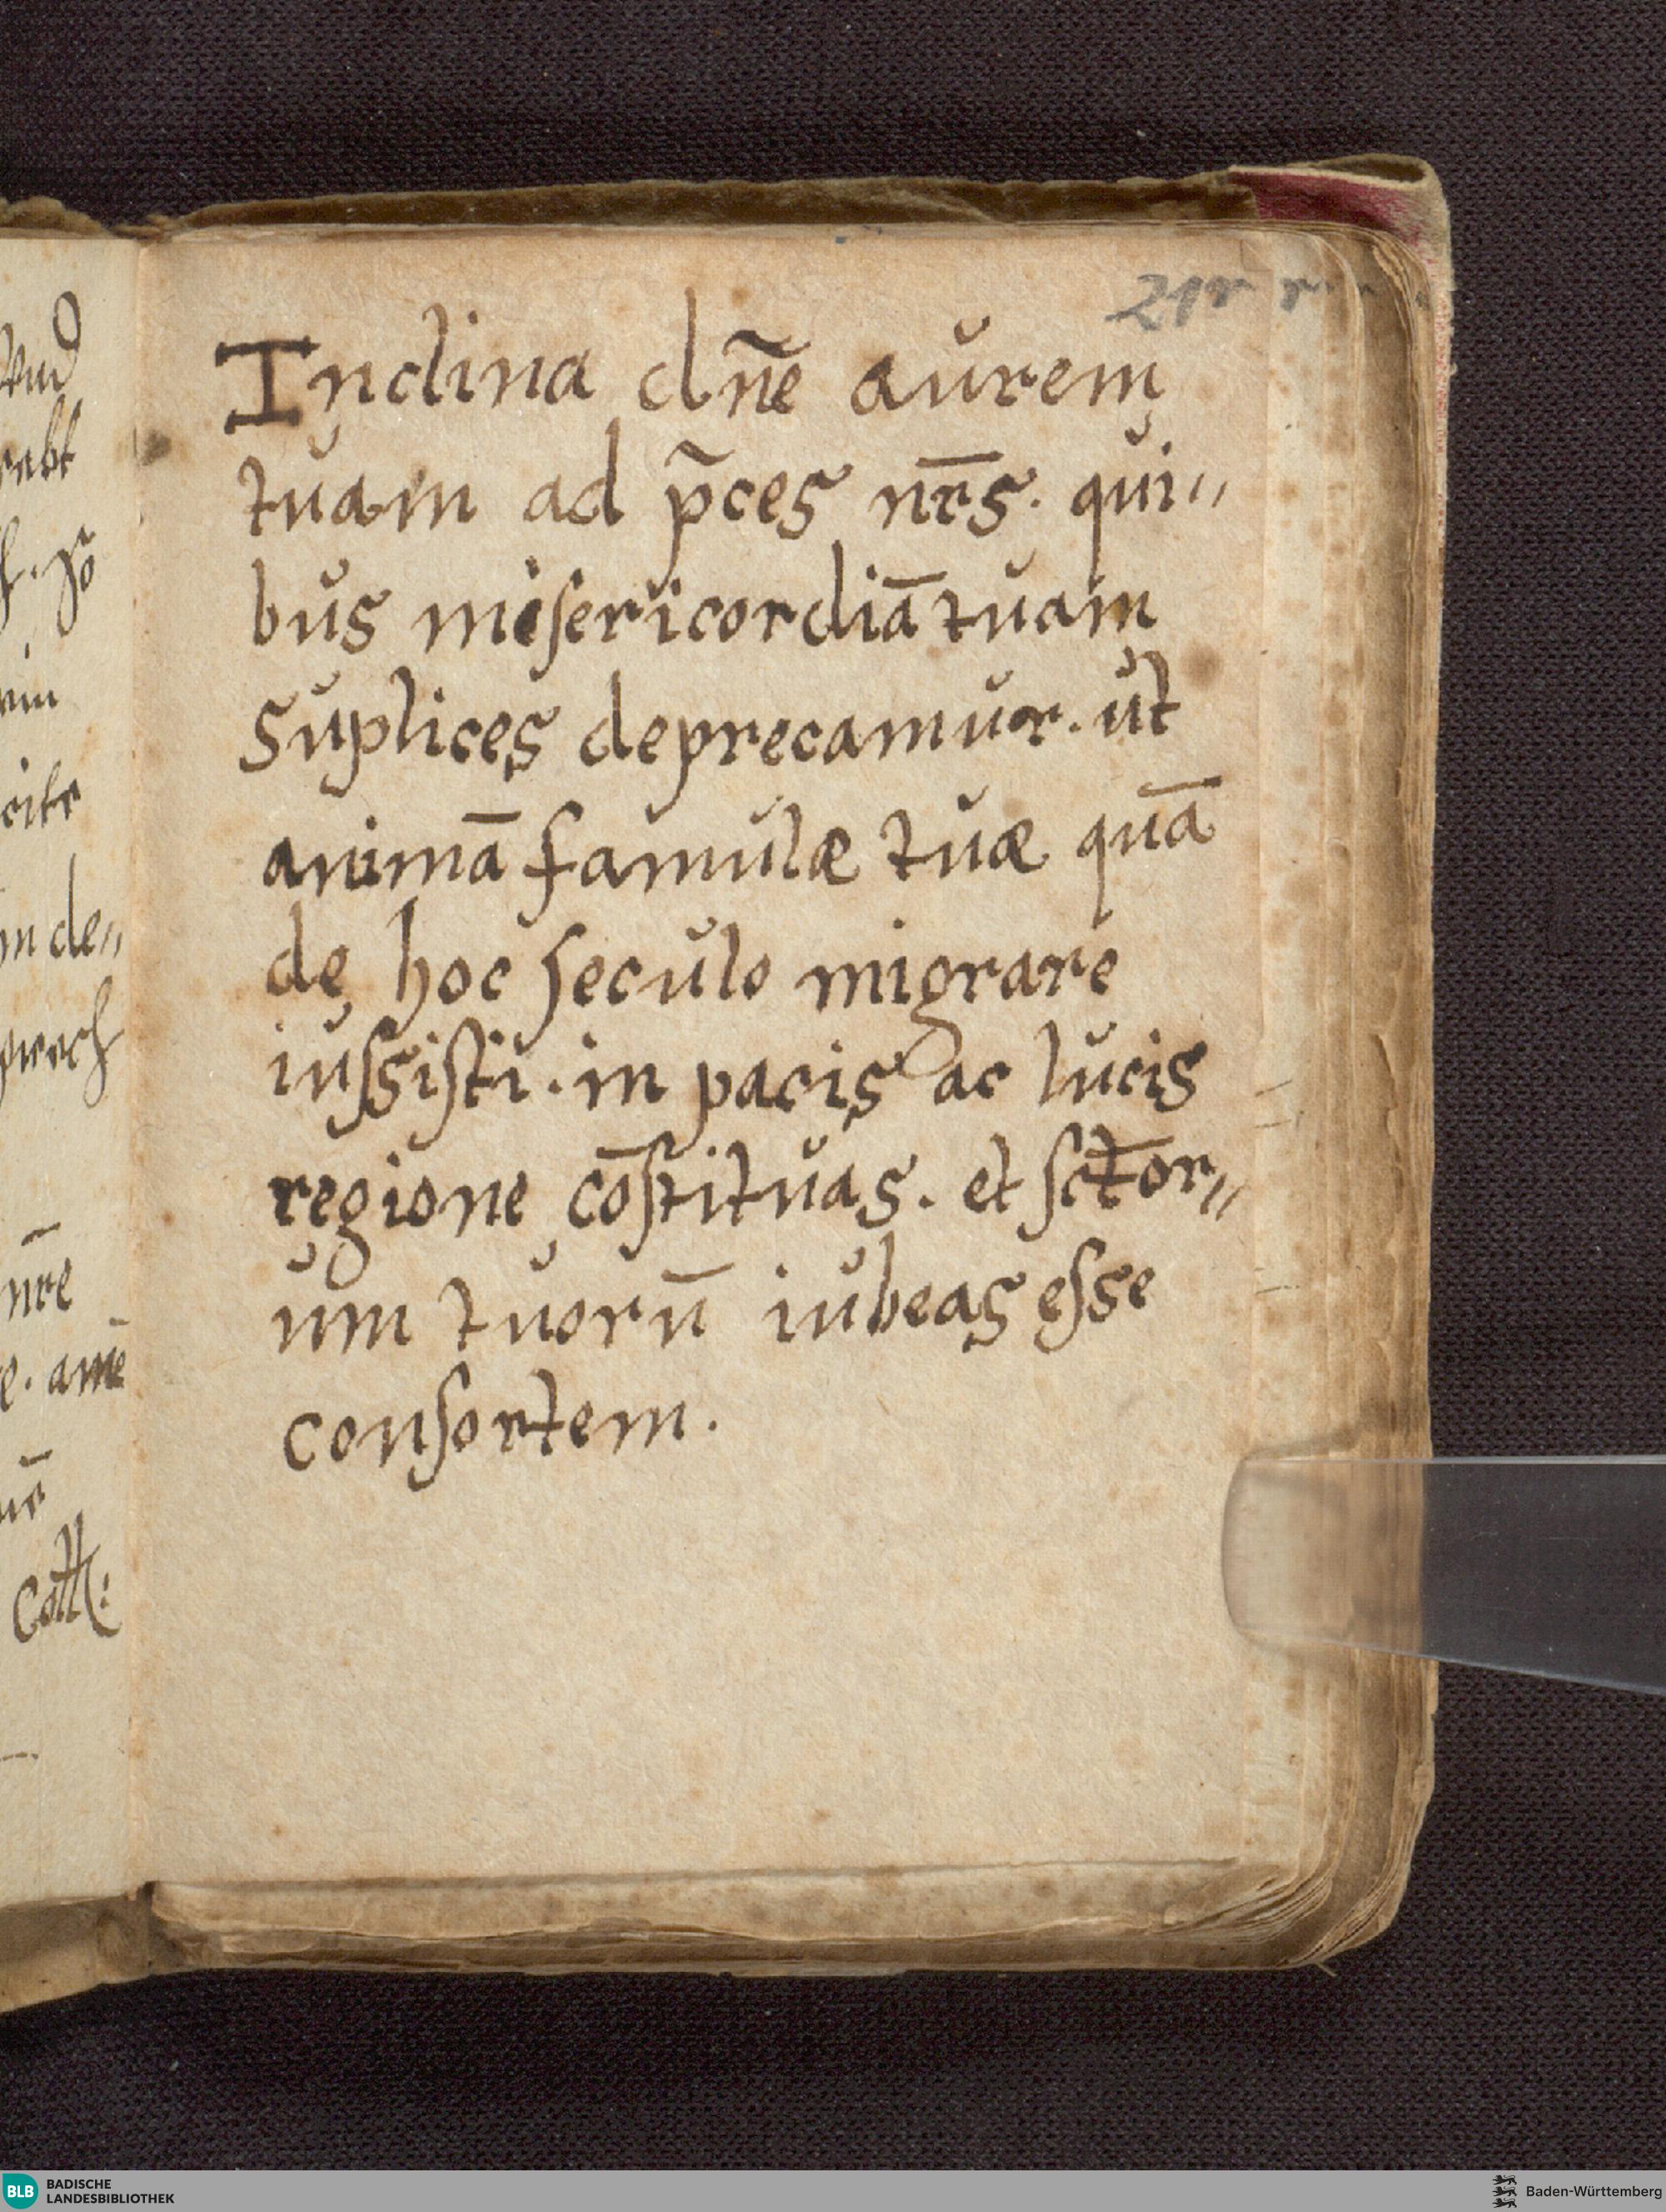 21r
Inclina dn̄e aurem
tuam ad p̄ces nr̄s. qui„
bus miſericordiā tuam
Suplices deprecamur. ut
animā famulæ tuæ quā
de hoc ſeculo migrare
iuſsiſti. in pacis ac lucis
regione cōſtituas. et ſct̄or„
um tuorū iubeas eſse
conſortem.
in de„
nr̄e
e. amē
Cath:
BLB BADISCHE
LANDESBIBLIOTHEK
Baden-Württemberg